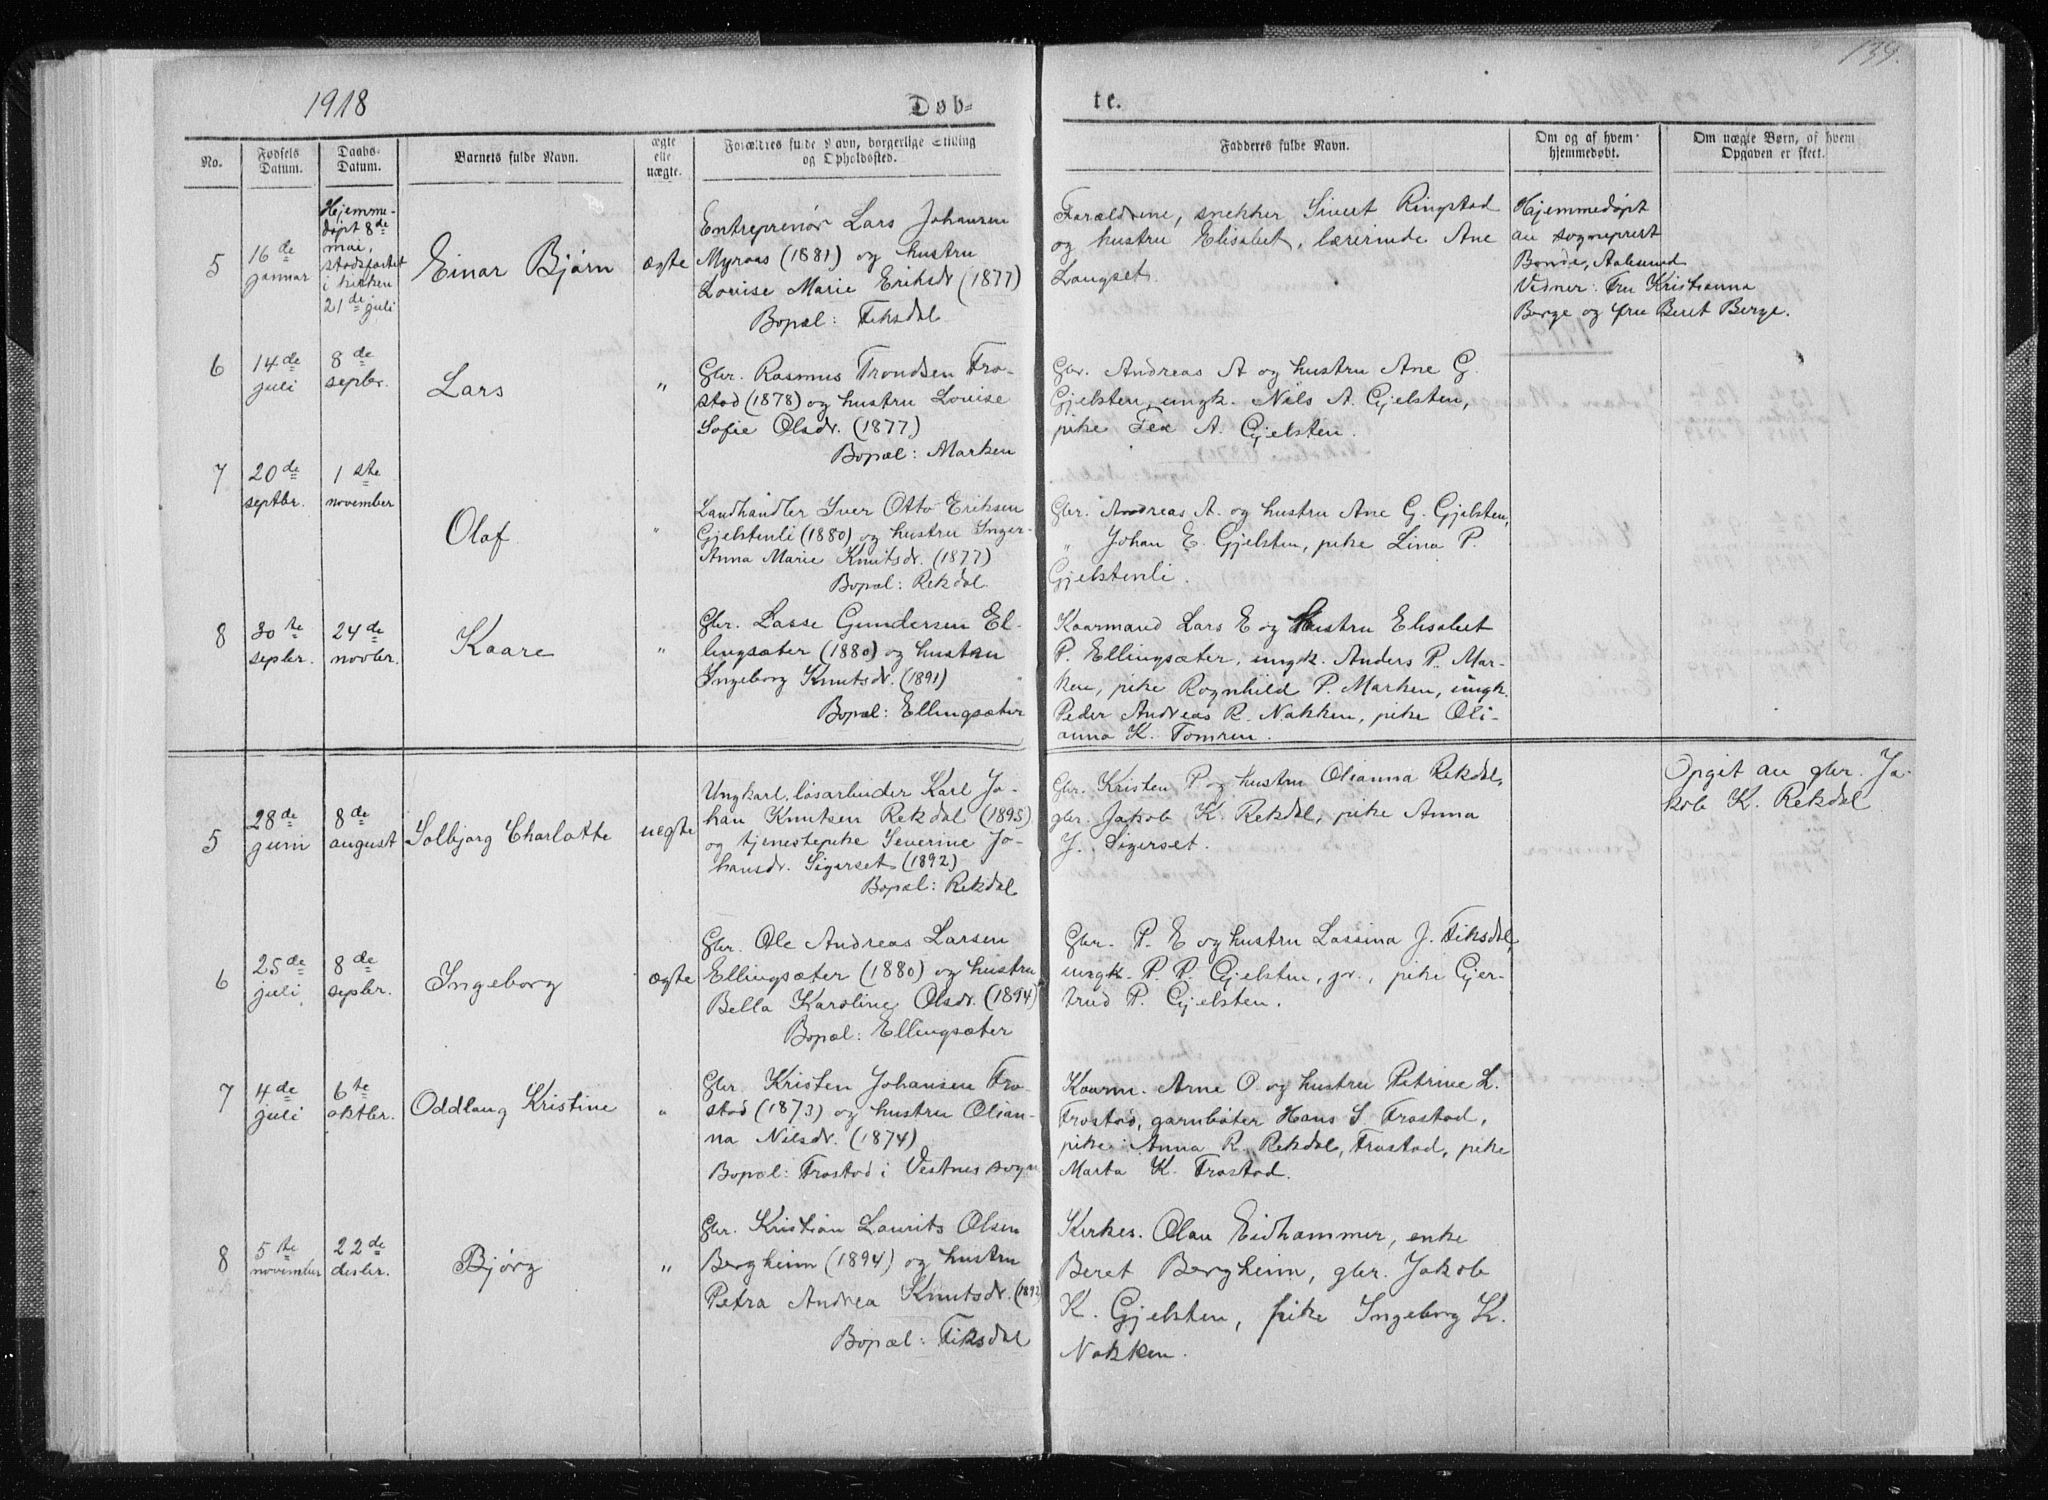 139.
1918
Døb-
te.
No.
Fødsels
Datum.
Daabs-
Datum.
Barnets fulde Navn.
ægte
elle
uægte.
Forældres fulde Navn, borgerlige Stilling
og Opholdssted.
Fadderes fulde Navn.
Om og af hvem
hjemmedøbt.
Om uægte Børn, af hvem
Opgaven er skeet.
5
16de
januar
Hjemme-
døpt 8de
mai,
stadfæstet
i kirken
21de juli
Einar Bjørn
ægte
Entreprenør Lars Johansen
Myraas (1881) og hustru
Louise Marie Eriksdr (1877)
Bopæl: Fiksdal
Forældrene, snekker Sivert Ringstad
og hustru Elisabet, lærerinde Ane
Langset.
Hjemmedøpt
av sogneprest
Bonde, Aalesund
Vidner: Fru Kristianna
Berge og fru Beret Berge.
6
14de
juli
8de
septbr.
Lars
"
Gbr. Rasmus Trondsen Fro-
stad (1878) og hustru Louise
Sofie Olsdr. (1877)
Bopæl: Marken
Gbr. Andreas A og hustru Ane G.
Gjelsten, ungk. Nils A. Gjelsten,
pike Fea A. Gjelsten.
7
20de
septbr.
1ste
november
Olaf
"
Landhandler Iver Otto Eriksen
Gjelstenli (1880) og hustru Inger
Anna Marie Knutsdr. (1877)
Bopæl: Rekdal
Gbr. Andreas A. og hustru Ane G. Gjelsten,
" Johan E. Gjelsten, pike Lina P.
Gjelstenli.
8
30te
septbr.
24de
novbr.
Kaare
"
Gbr. Lasse Gundersen El-
lingsæter (1880) og hustru
Ingeborg Knutsdr. (1891)
Bopæl: Ellingsæter
Kaarmand Lars E og Hustru Elisabet
P. Ellingsæter, ungk. Anders P. Mar-
ken, pike Ragnhild P. Marken, ungk.
Peder Andreas R. Nakken, pike Oli-
anna K. Tomren.
5
28de
juni
8de
august
Solbjørg Charlotte
uegte
Ungkarl, løsarbeider Karl Jo-
han Knutsen Rekdal (1895)
og tjenestepike Severine Jo-
hansdr. Sigerset (1892)
Bopæl: Rekdal
Gbr. Kristen P og hustru Olianna Rekdal,
gbr. Jakob K. Rekdal, pike Anna
J. Sigerset.
Opgit av gbr. Ja-
kob K. Rekdal
6
25de
juli
8de
septbr.
Ingeborg
ægte
Gbr. Ole Andreas Larsen
Ellingsæter (1880) og hustru
Bella Karoline Olsdr. (1894)
Bopæl: Ellingsæter
Gbr. P. E og hustru Lassina J. Fiksdal,
ungk. P. P. Gjelsten, jr., pike Gjer-
trud P. Gjelsten.
7
4de
juli
6te
oktbr.
Oddlaug Kristine
"
Gbr. Kristen Johansen Fro-
stad (1873) og hustru Olian-
na Nilsdr. (1874)
Bopæl: Frostad i Vestnes sogn
Kaarm. Arne O. og hustru Petrine L.
Frostad, garnbøter Hans S Frostad,
pike Anna R. Rekdal, Frostad, pike
Marta K. Frostad.
8
5te
november
22de
desbr.
Bjørg
"
Gbr. Kristian Laurits Olsen
Bergheim (1894) og hustru
Petra Andrea Knutsdr. (1892)
Bopæl: Fiksdal
Kirkes. Olav Eidhammer, enke
Beret Bergheim, gbr. Jakob
K. Gjelsten, pike Ingeborg K.
Nakken.